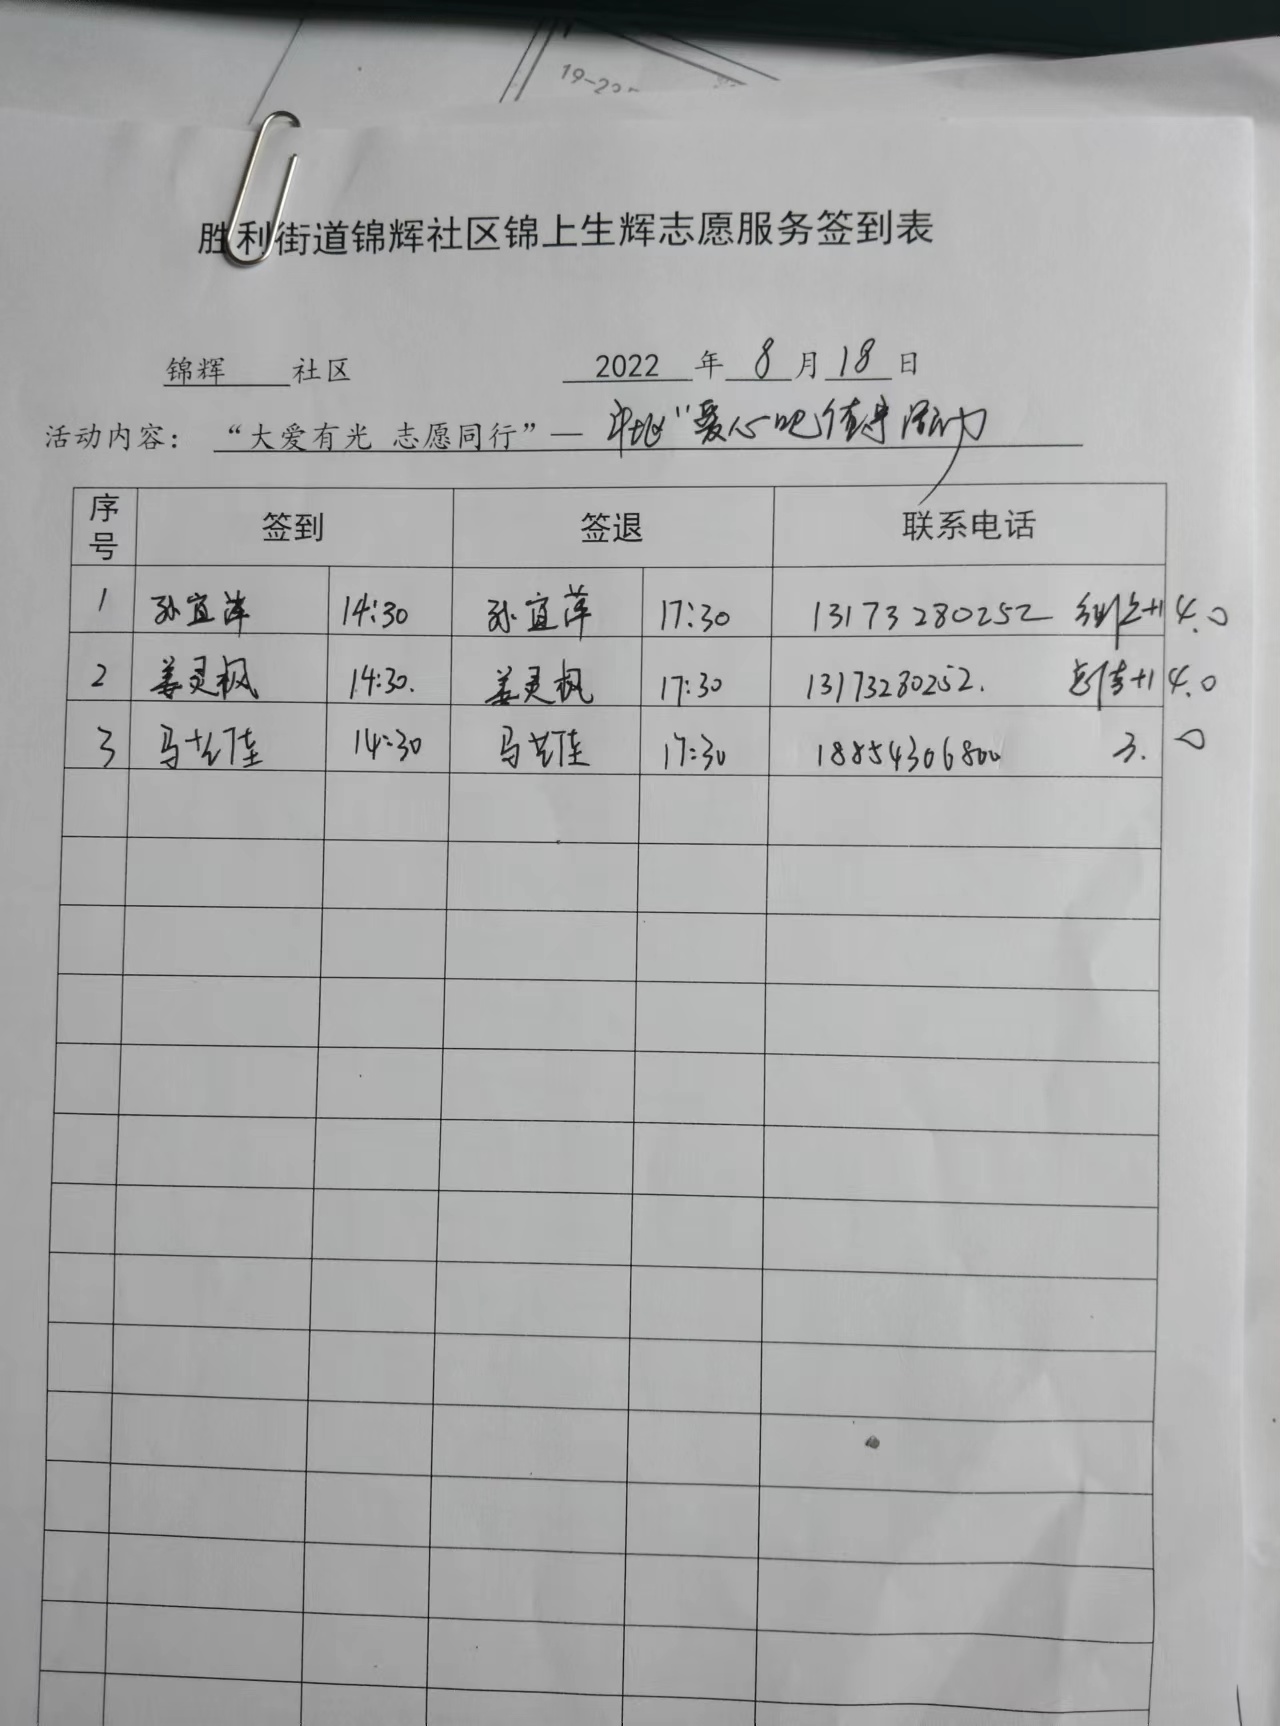 19-22
胜利街道锦辉社区锦上生辉志愿服务签到表
锦辉 社区 2022 年 8 月 18 日
活动内容： “大爱有光 志愿同行”— "爱心吧值守活动
序号 签到 签退 联系电话
1 孙宜萍 14:30 孙宜萍 17:30 13173280252 +1 4.0
2 姜灵枫 14:30. 姜灵枫 17:30 13173280252. +1 4.0
3 马 佳 14:30 马 佳 17:30 18854306800 3. 0